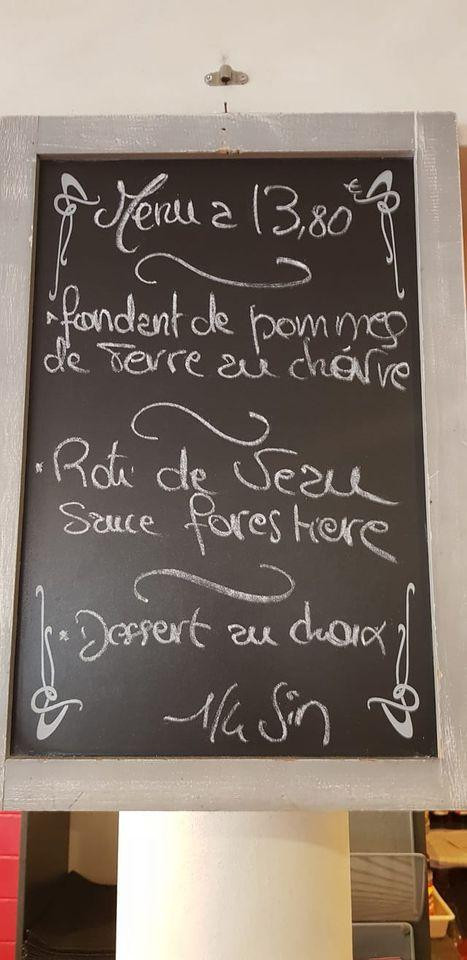 Menu a 13,80€
*fondant de pommes
de Terre au chèvre
* Roti de Veau
Sauce forestiere
* Dessert au choix
1/4 Vin